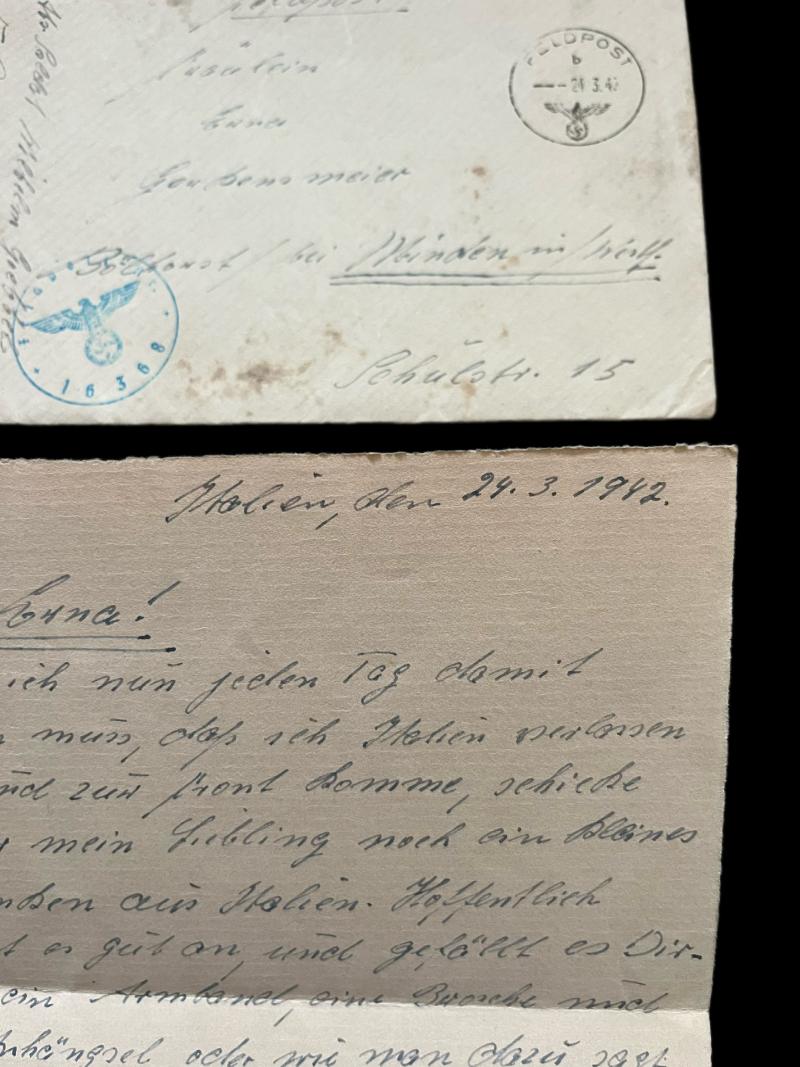 Feldpost
Fräulein
Erna
Bölhorst / bei Minden in / Westf.
Schulstr. 15
FELDPOST
b
24.3.42
16368
Italien, den 24. 3. 1942.
Erna!
ich nun jeden Tag damit
muss, daß ich Italien verlassen
und zur Front komme, schicke
mein Liebling noch ein kleines
aus Italien. Hoffentlich
es gut an, und gefällt es Dir.
ein Armband, eine Brosche und
oder wie man dazu sagt